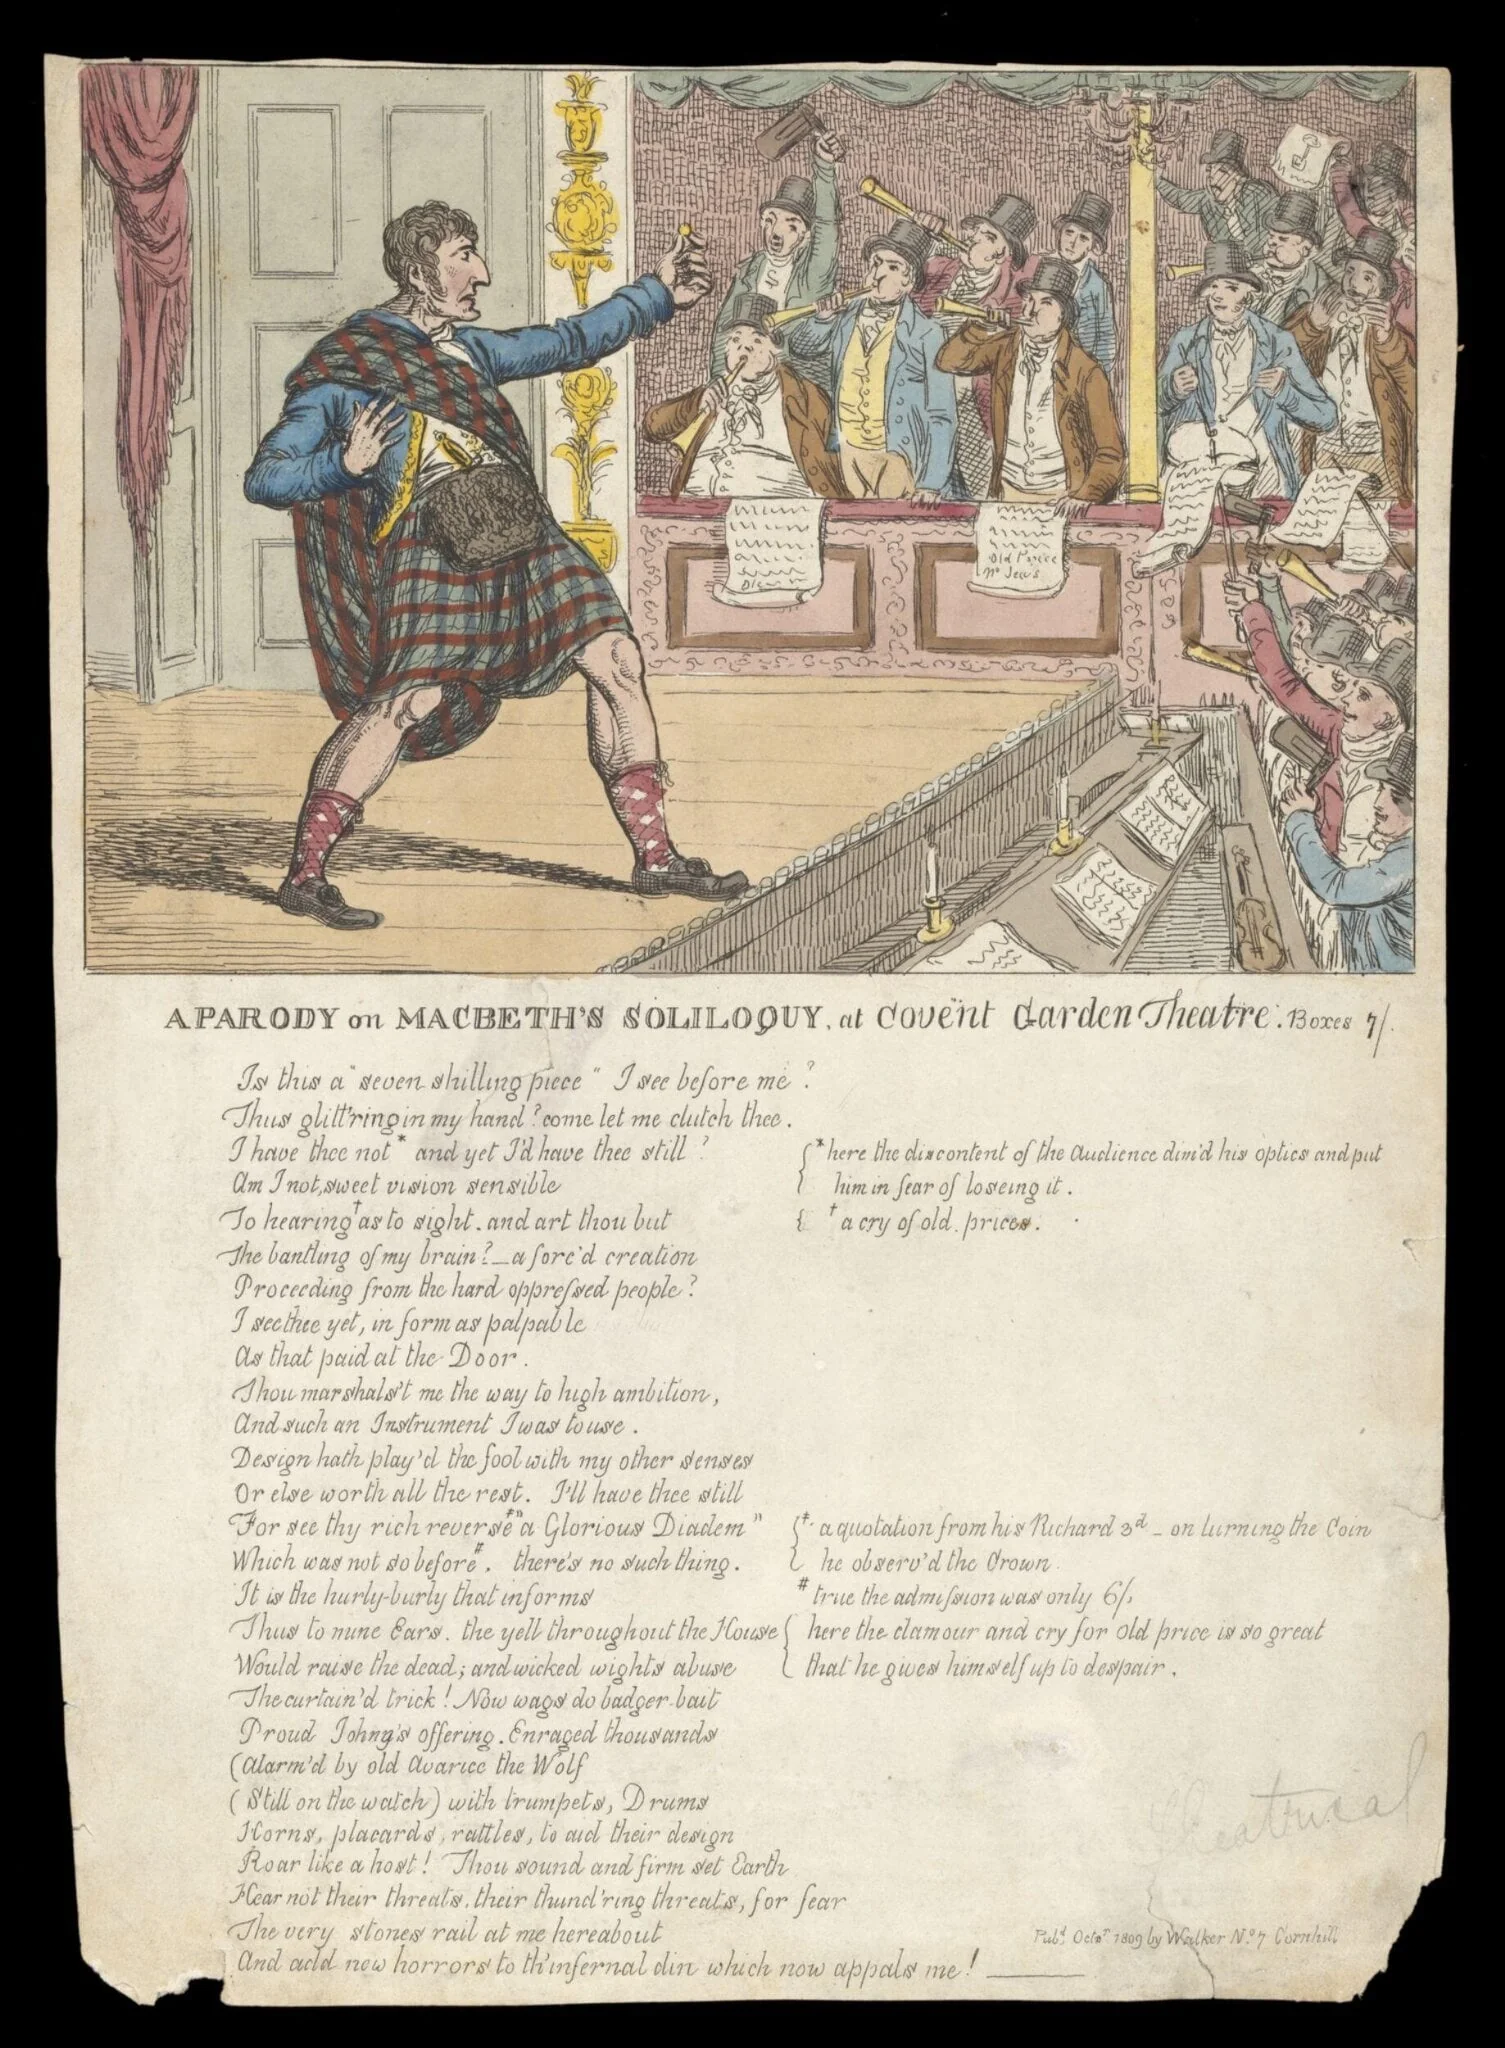 Old Price
No Jews
A PARODY on MACBETH'S SOLILOQUY, at Covent Garden Theatre. Boxes 7/.
Is this a "seven shilling piece" I see before me?
Thus glitt'ring in my hand? come let me clutch thee.
I have thee not * and yet I'd have thee still?
Am I not, sweet vision sensible
To hearing † as to sight. and art thou but
The bantling of my brain? — a forc'd creation
Proceeding from the hard oppreſsed people?
I see thee yet, in form as palpable
As that paid at the Door.
Thou marshals't me the way to high ambition,
And such an Instrument I was to use.
Design hath play'd the fool with my other senses
Or else worth all the rest. I'll have thee still
For see thy rich reverse ‡ "a Glorious Diadem"
Which was not so before #. there's no such thing.
It is the hurly-burly that informs
Thus to mine Ears. the yell throughout the House
Would raise the dead; and wicked wights abuse
The curtain'd trick! Now wags do badger-bait
Proud Johny's offering. Enraged thousands
(Alarm'd by old Avarice the Wolf
(Still on the watch) with trumpets, Drums
Horns, placards, rattles, to aid their design
Roar like a host! Thou sound and firm set Earth
Hear not their threats, their thund'ring threats, for fear
The very stones rail at me hereabout
And add new horrors to th'infernal din which now appals me!
* here the discontent of the Audience dim'd his optics and put
him in fear of loseing it.
† a cry of old prices.
‡ a quotation from his Richard 3d — on turning the Coin
he observ'd the Crown.
# true the admiſsion was only 6/.
here the clamour and cry for old price is so great
that he gives himself up to despair.
Theatrical
Pubd. Octor. 1809 by Walker No. 7 Cornhill